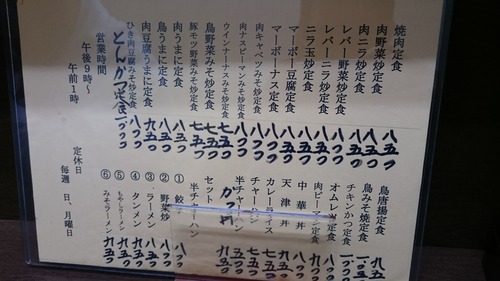 焼肉定食 八五〇
肉野菜炒定食 八五〇
肉ニラ炒定食 八五〇
レバー野菜炒定食 八〇〇
レバーニラ炒定食 八〇〇
ニラ玉炒定食 八〇〇
マーボー豆腐定食 八〇〇
マーボーナス定食 八〇〇
肉キャベツみそ炒定食 八〇〇
肉ナスピーマンみそ炒定食 八〇〇
ウインナーナスみそ炒定食 七五〇
鳥野菜みそ炒定食 七五〇
豚モツ野菜みそ炒定食 七五〇
肉うまに定食 八五〇
鳥うまに定食
肉豆腐うまに定食 九五〇
ひき肉豆腐みそ炒定食 八〇〇
とんかつ定食 一〇〇〇
営業時間
午後9時〜
午前1時
鳥唐揚定食 九五〇
鳥みそ焼定食
チキンかつ定食
オムレツ定食
肉ピーマン定食
中華丼
天津丼 八〇〇
カレーライス 七五〇
チャーハン 七五〇
半チャーハン 五〇〇
かつ丼
セット
半チャーハン
① 餃子
② 野菜炒
③ ラーメン
④ タンメン
⑤ もやしラーメン
⑥ みそラーメン
定休日
毎週 日、月曜日